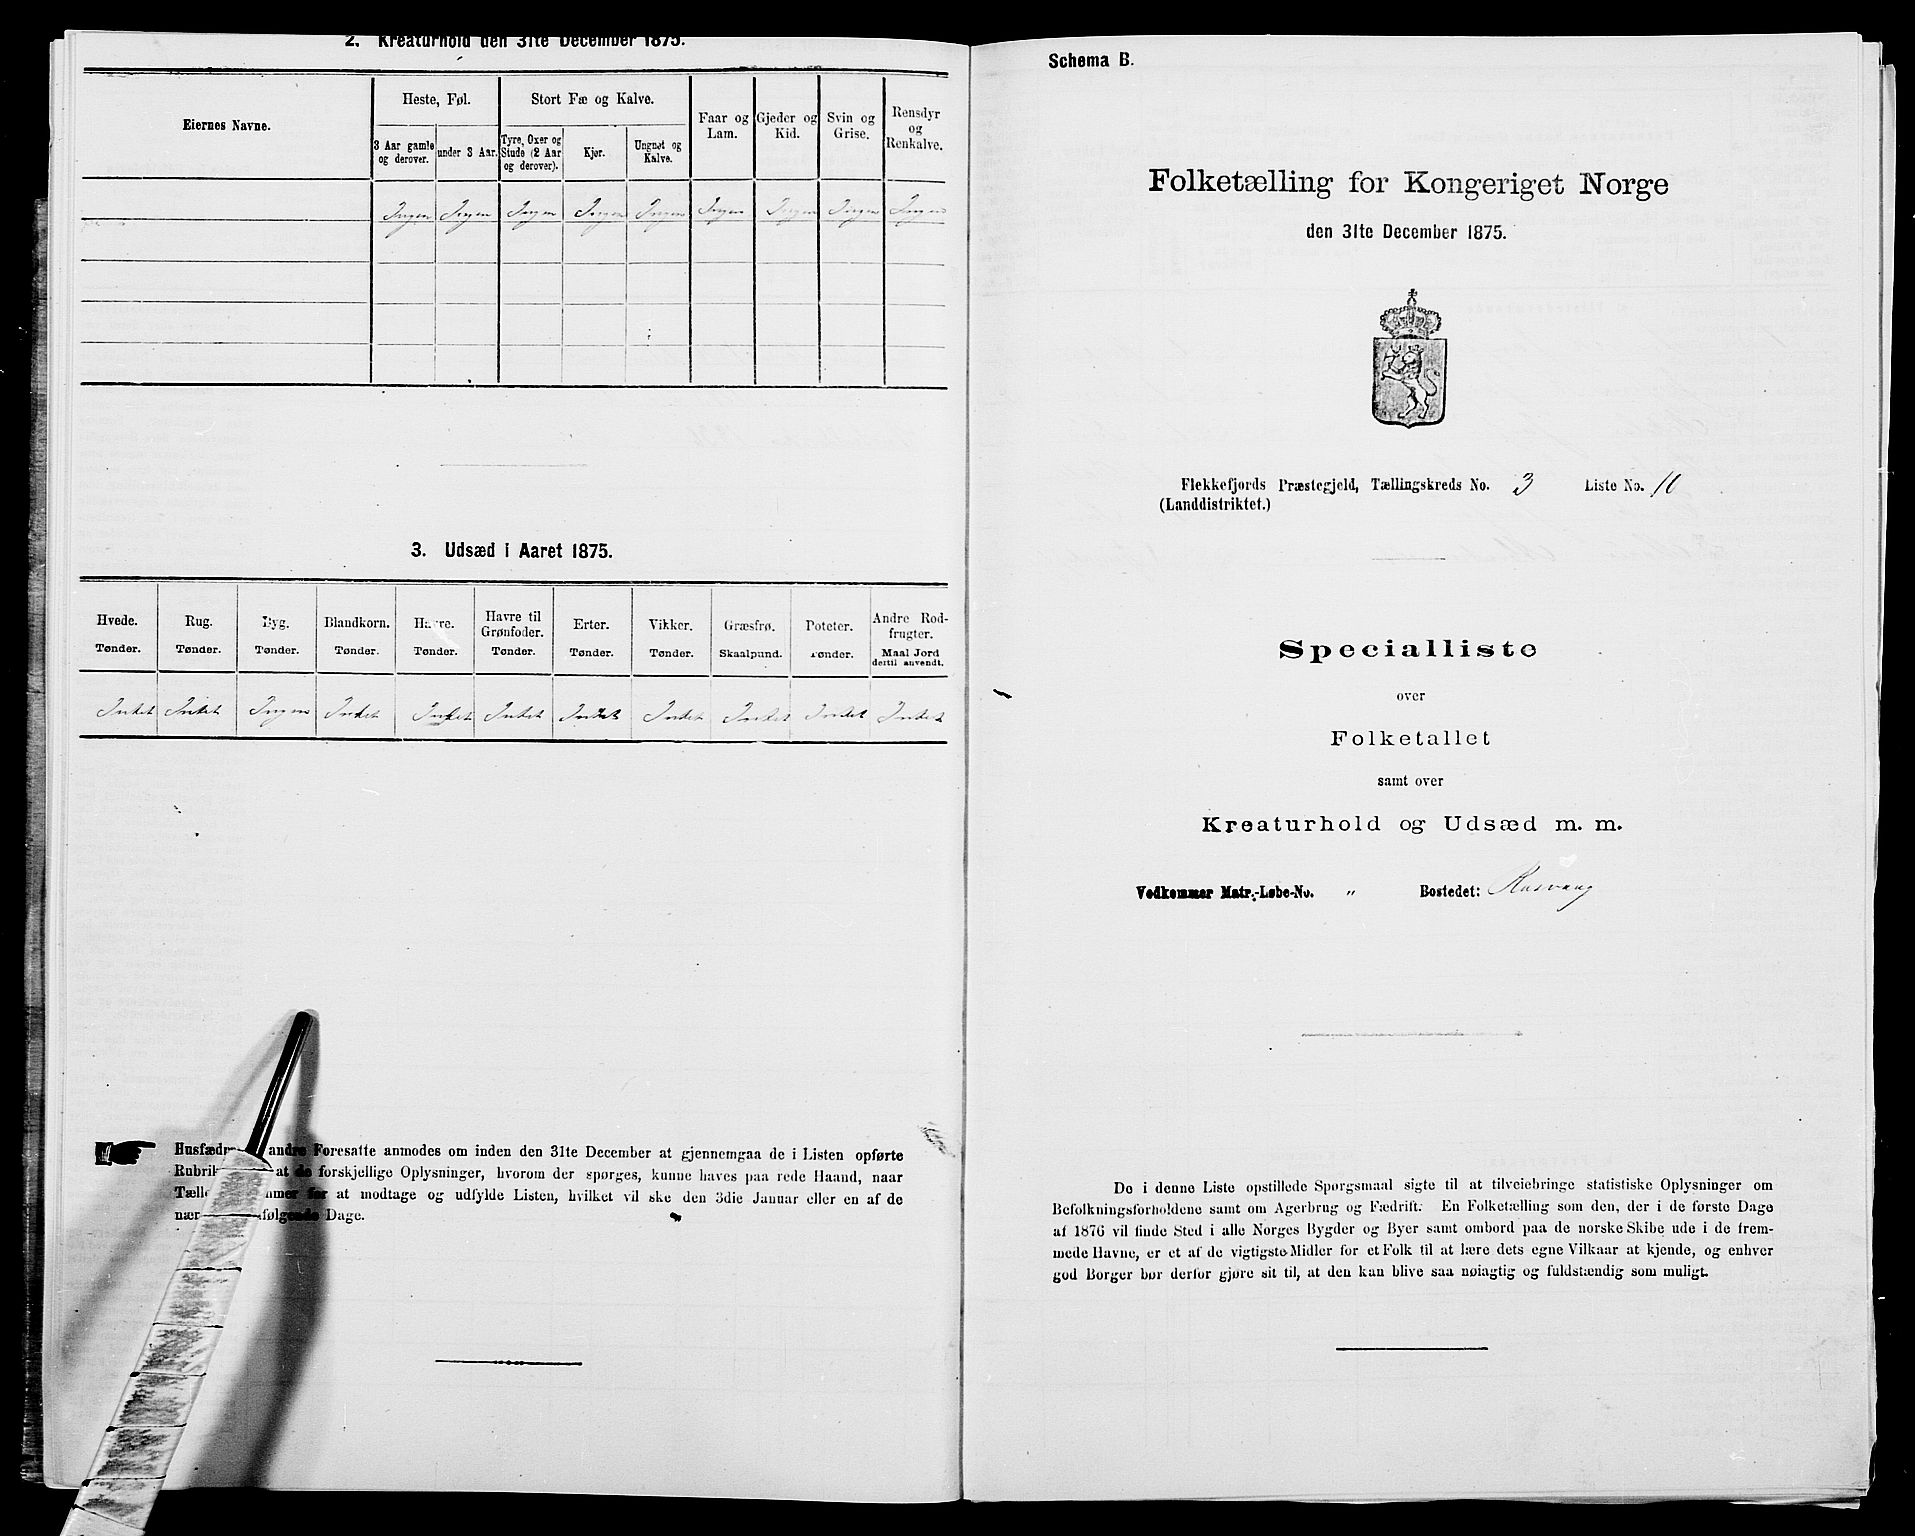 2. Kreaturhold den 31te December 1875.
Eiernes Navne.
Heste, Føl.
Stort Fæ og Kalve.
Faar og Lam.
Gjeder og Kid.
Svin og Grise.
Rensdyr og Renkalve.
3 Aar gamle og derover.
under 3 Aar.
Tyre, Oxer og Stude (2 Aar og derover).
Kjør.
Ungnøt og Kalve.
Ingen Ingen Ingen Ingen Ingen Ingen Ingen Ingen Ingen
3. Udsæd i Aaret 1875.
Hvede. Tønder.
Rug. Tønder.
Byg. Tønder.
Blandkorn. Tønder.
Havre. Tønder.
Havre til Grønfoder. Tønder.
Erter. Tønder.
Vikker. Tønder.
Græsfrø. Skaalpund.
Poteter. Tønder.
Andre Rodfrugter. Maal Jord dertil anvendt.
Intet Intet Ingen Intet Intet Intet Intet Intet Intet Intet Intet
andre Foresatte anmodes om inden den 31te December at gjennemgaa de i Listen opførte
at de forskjellige Oplysninger, hvorom der spørges, kunne haves paa rede Haand, naar
at modtage og udfylde Listen, hvilket vil ske den 3die Januar eller en af de
Dage.
Schema B.
Folketælling for Kongeriget Norge
den 31te December 1875.
Flekkefjords Præstegjeld, Tællingskreds No. 3 Liste No. 10
(Landdistriktet.)
Specialliste
over
Folketallet
samt over
Kreaturhold og Udsæd m. m.
Vedkommer Matr.-Løbe-No. " Bostedet: Rasvaag
De i denne Liste opstillede Spørgsmaal sigte til at tilveiebringe statistiske Oplysninger om
Befolkningsforholdene samt om Agerbrug og Fædrift. En Folketælling som den, der i de første Dage
af 1876 vil finde Sted i alle Norges Bygder og Byer samt ombord paa de norske Skibe ude i de frem-
mede Havne, er et af de vigtigste Midler for et Folk til at lære dets egne Vilkaar at kjende, og enhver
god Borger bør derfor gjøre sit til, at den kan blive saa nøiagtig og fuldstændig som muligt.